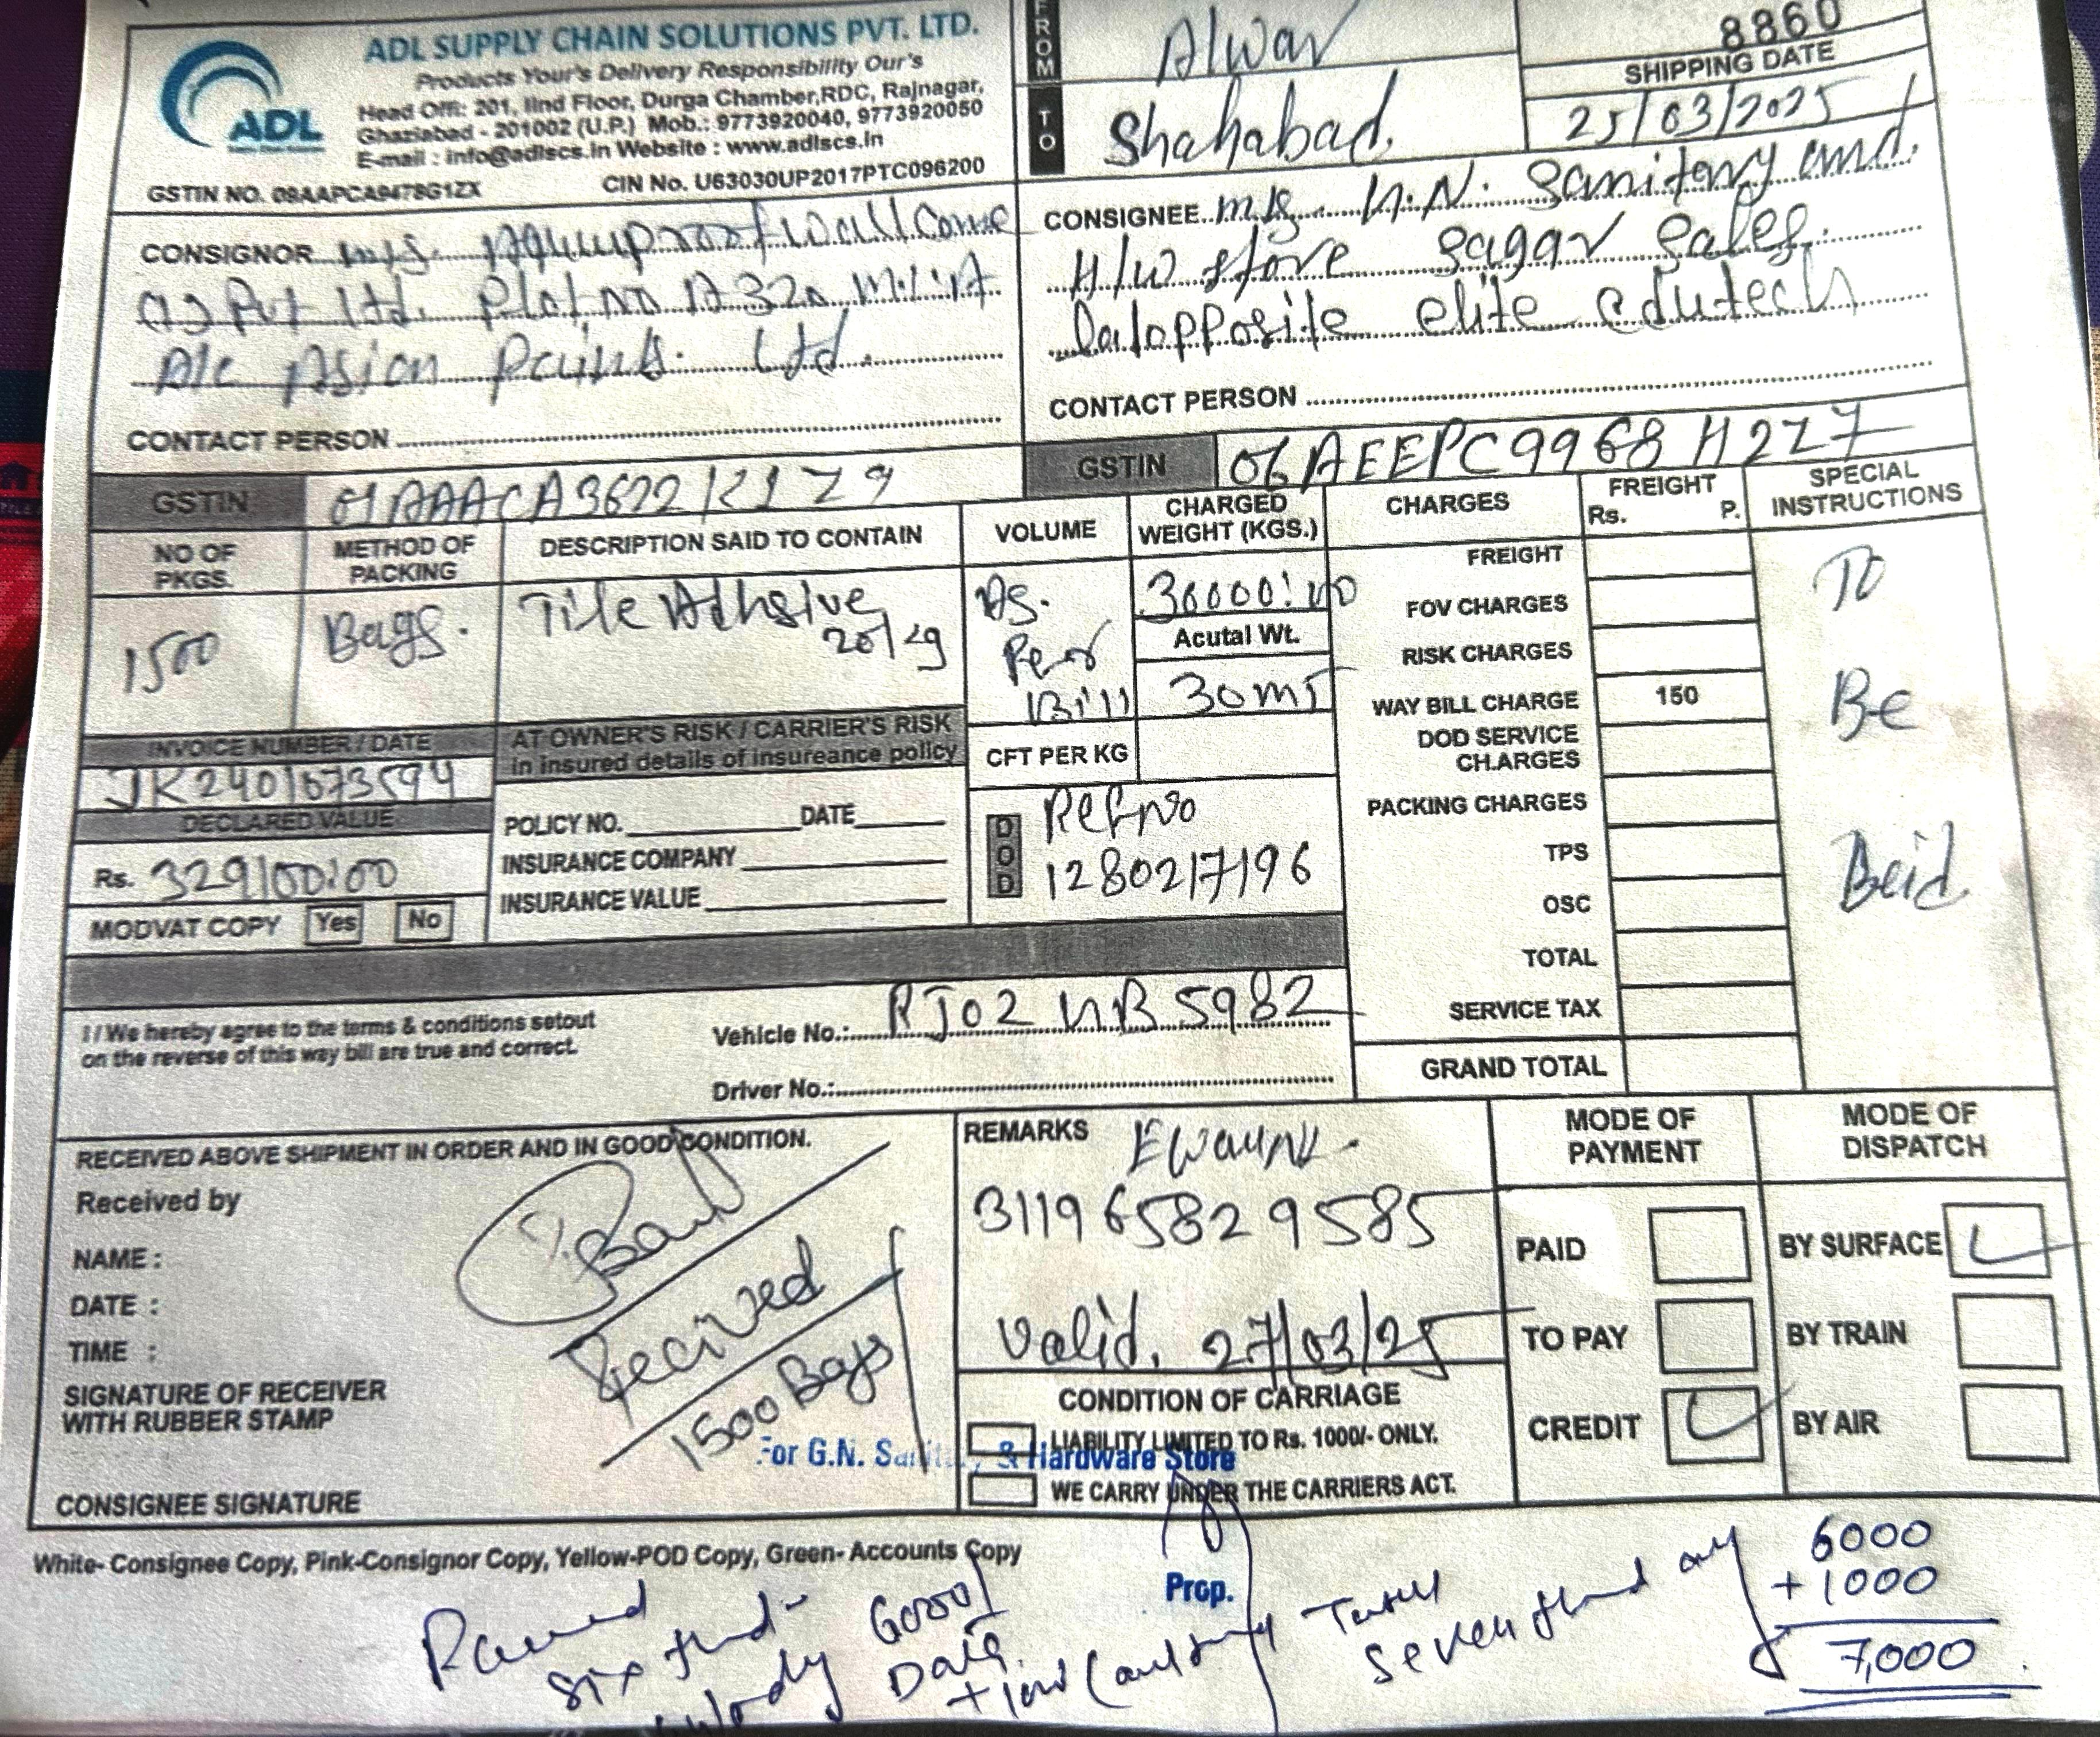 ADL SUPPLY CHAIN SOLUTIONS PVT. LTD.
Products Your's Delivery Responsibility Our's
Head Offi: 201, IInd Floor, Durga Chamber,RDC, Rajnagar,
Ghaziabad - 201002 (U.P.) Mob.: 9773920040, 9773920050
E-mail : info@adlscs.in Website : www.adlscs.in
ADL
GSTIN NO. 09AAPCA9478G1ZX CIN No. U63030UP2017PTC096200
FROM Alwar
TO Shahabad
8860
SHIPPING DATE
25/03/2025
CONSIGNOR m/s.
Pvt Ltd. Plot no A 32
A/c Asian Paints Ltd
CONTACT PERSON
GSTIN
CONSIGNEE m/s N. Sanitary and
H/W store Sagar Sales
opposite elite edutech
CONTACT PERSON
GSTIN 06AEEPC9968H2Z7
NO OF PKGS.
METHOD OF PACKING
DESCRIPTION SAID TO CONTAIN
VOLUME
CHARGED WEIGHT (KGS.)
CHARGES
FREIGHT
Rs. P.
SPECIAL INSTRUCTIONS
1500
Bags.
Tile Adhsive
As.
Per
Bill
30000
Acutal Wt.
30 MT
CFT PER KG
FREIGHT
FOV CHARGES
RISK CHARGES
WAY BILL CHARGE 150
DOD SERVICE CH.ARGES
PACKING CHARGES
TPS
OSC
TOTAL
SERVICE TAX
GRAND TOTAL
To
Be
INVOICE NUMBER / DATE
JK2401673594
DECLARED VALUE
Rs. 329100:00
MODVAT COPY Yes No
AT OWNER'S RISK / CARRIER'S RISK
in insured details of insureance policy
POLICY NO. DATE
INSURANCE COMPANY
INSURANCE VALUE
DOD
Ref no
1280217196
I / We hereby agree to the terms & conditions setout
on the reverse of this way bill are true and correct.
Vehicle No.: RJ02 5982
Driver No.:
RECEIVED ABOVE SHIPMENT IN ORDER AND IN GOOD CONDITION.
Received by
NAME :
DATE :
TIME :
SIGNATURE OF RECEIVER
WITH RUBBER STAMP
CONSIGNEE SIGNATURE
Recived
1500 Bags
For G.N. Sanitary & Hardware Store
Prop.
REMARKS
311965829585
Valid. 27/03/25
CONDITION OF CARRIAGE
LIABILITY LIMITED TO Rs. 1000/- ONLY.
WE CARRY UNDER THE CARRIERS ACT.
MODE OF PAYMENT
PAID
TO PAY
CREDIT
MODE OF DISPATCH
BY SURFACE
BY TRAIN
BY AIR
White- Consignee Copy, Pink-Consignor Copy, Yellow-POD Copy, Green- Accounts Copy
six
6000
+ 1000
7,000